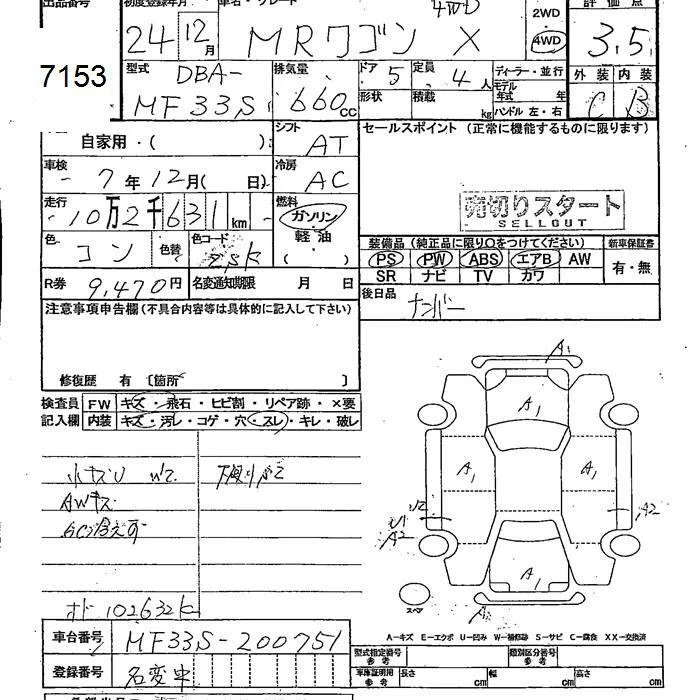 出品番号 初度登録年月 車名・グレード 4WD 評価点
24 12月 MRワゴン X 2WD 4WD 3.5
7153
型式 DBA- 排気量 ドア 5 定員 4人 ディーラー・並行 外装 内装
MF33S 660cc 形状 積載 kg モデル年式 年 ハンドル 左・右 C B
自家用・( ) シフト AT セールスポイント (正常に機能するものに限ります)
車検 7年12月( 日) 冷房 AC
走行 10万2千631km 燃料 ガソリン 売切りスタート
軽油 SELLOUT
色 コン 色替 色コード ZSK ( ) 装備品(純正品に限り○をつけてください) 新車保証書
PS PW ABS エアB AW 有・無
SR ナビ TV カワ
R券 9,470円 名変通知期限 月 日 後日品 ナンバー
注意事項申告欄(不具合内容等は具体的に記入して下さい)
修復歴 有 〔箇所 〕
検査員 FW キズ・飛石・ヒビ割・リペア跡・×要
記入欄 内装 キズ・汚レ・コゲ・穴・スレ・キレ・破レ
A1
A1
A1 A1
U2 A2
U1
A2
小キズU
AWキズ
A1
スペア
A2
オド 102632K
A-キズ E-エクボ U-凹み W-補修跡 S-サビ C-腐食 XX-交換済
車台番号 MF33S-200751 型式指定番号 参考 類別区分番号 参考
登録番号 名変車 車庫証明用 参考 長さ cm 幅 cm 高さ cm